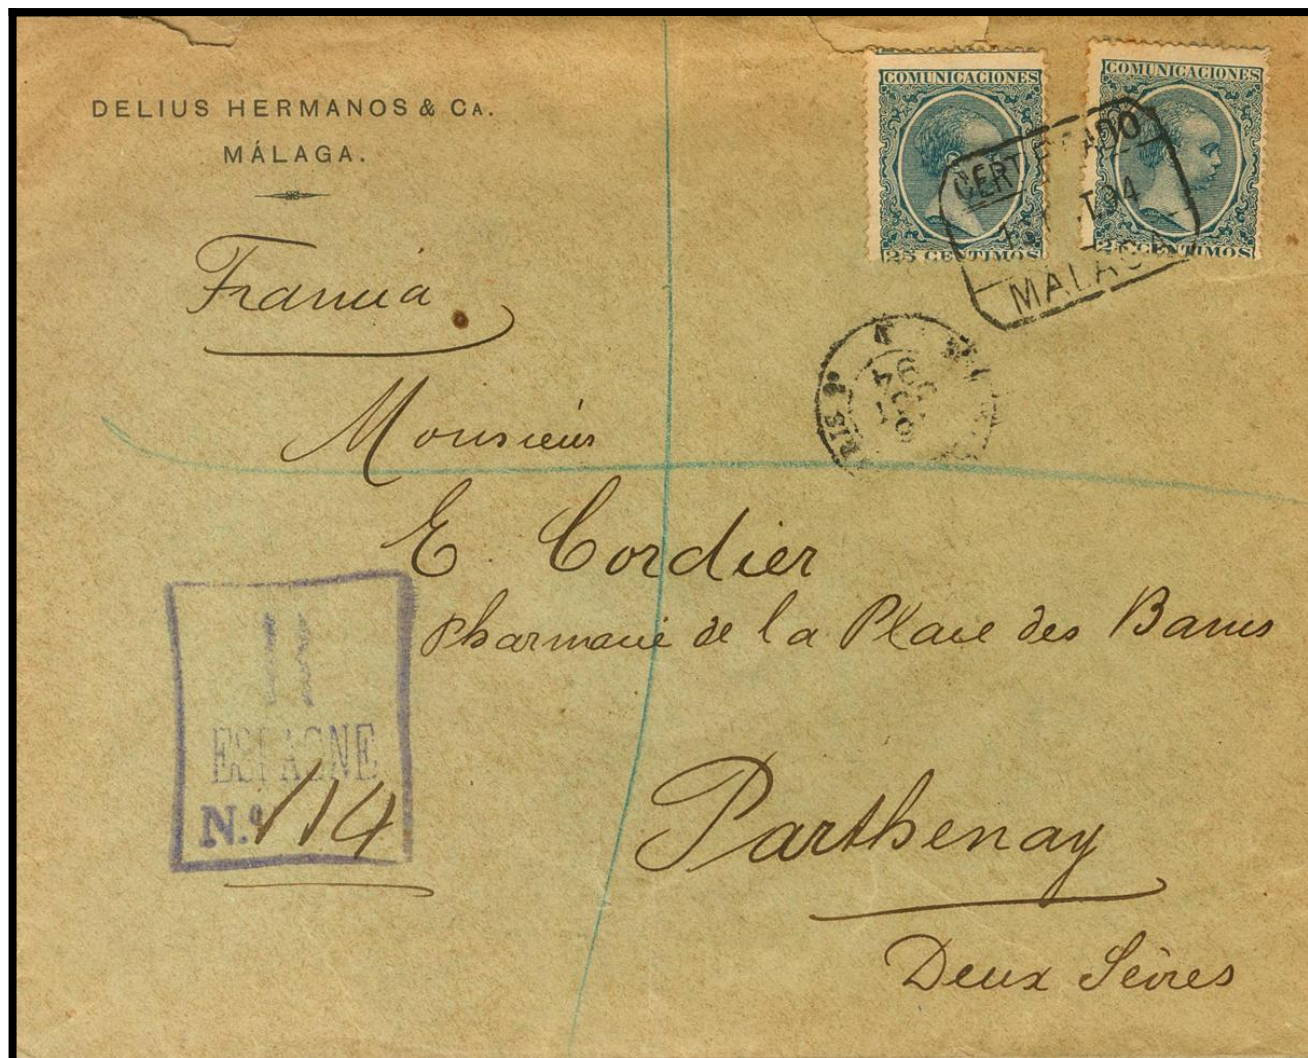 DELIUS HERMANOS & CA.
MÁLAGA.
COMUNICACIONES
25 CENTIMOS
COMUNICACIONES
CENTIMOS
CERTIFICADO
94
MALAGA
Francia
94
Monsieur
E. Cordier
Pharmacie de la Place des Bancs
R
ESPAGNE
N.º 114
Parthenay
Deux Sèvres